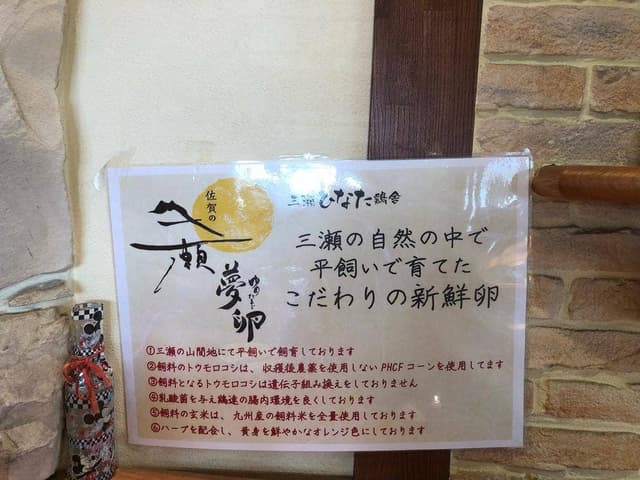 佐賀の
三瀬
夢卵
ゆめたまご
三瀬ひなた鶏舎
三瀬の自然の中で
平飼いで育てた
こだわりの新鮮卵
①三瀬の山間地にて平飼いで飼育しております
②飼料のトウモロコシは、収穫後農薬を使用しないPHCFコーンを使用してます
③飼料となるトウモロコシは遺伝子組み換えをしておりません
④乳酸菌を与え鶏達の腸内環境を良くしております
⑤飼料の玄米は、九州産の飼料米を全量使用しております
⑥ハーブを配合し、黄身を鮮やかなオレンジ色にしております